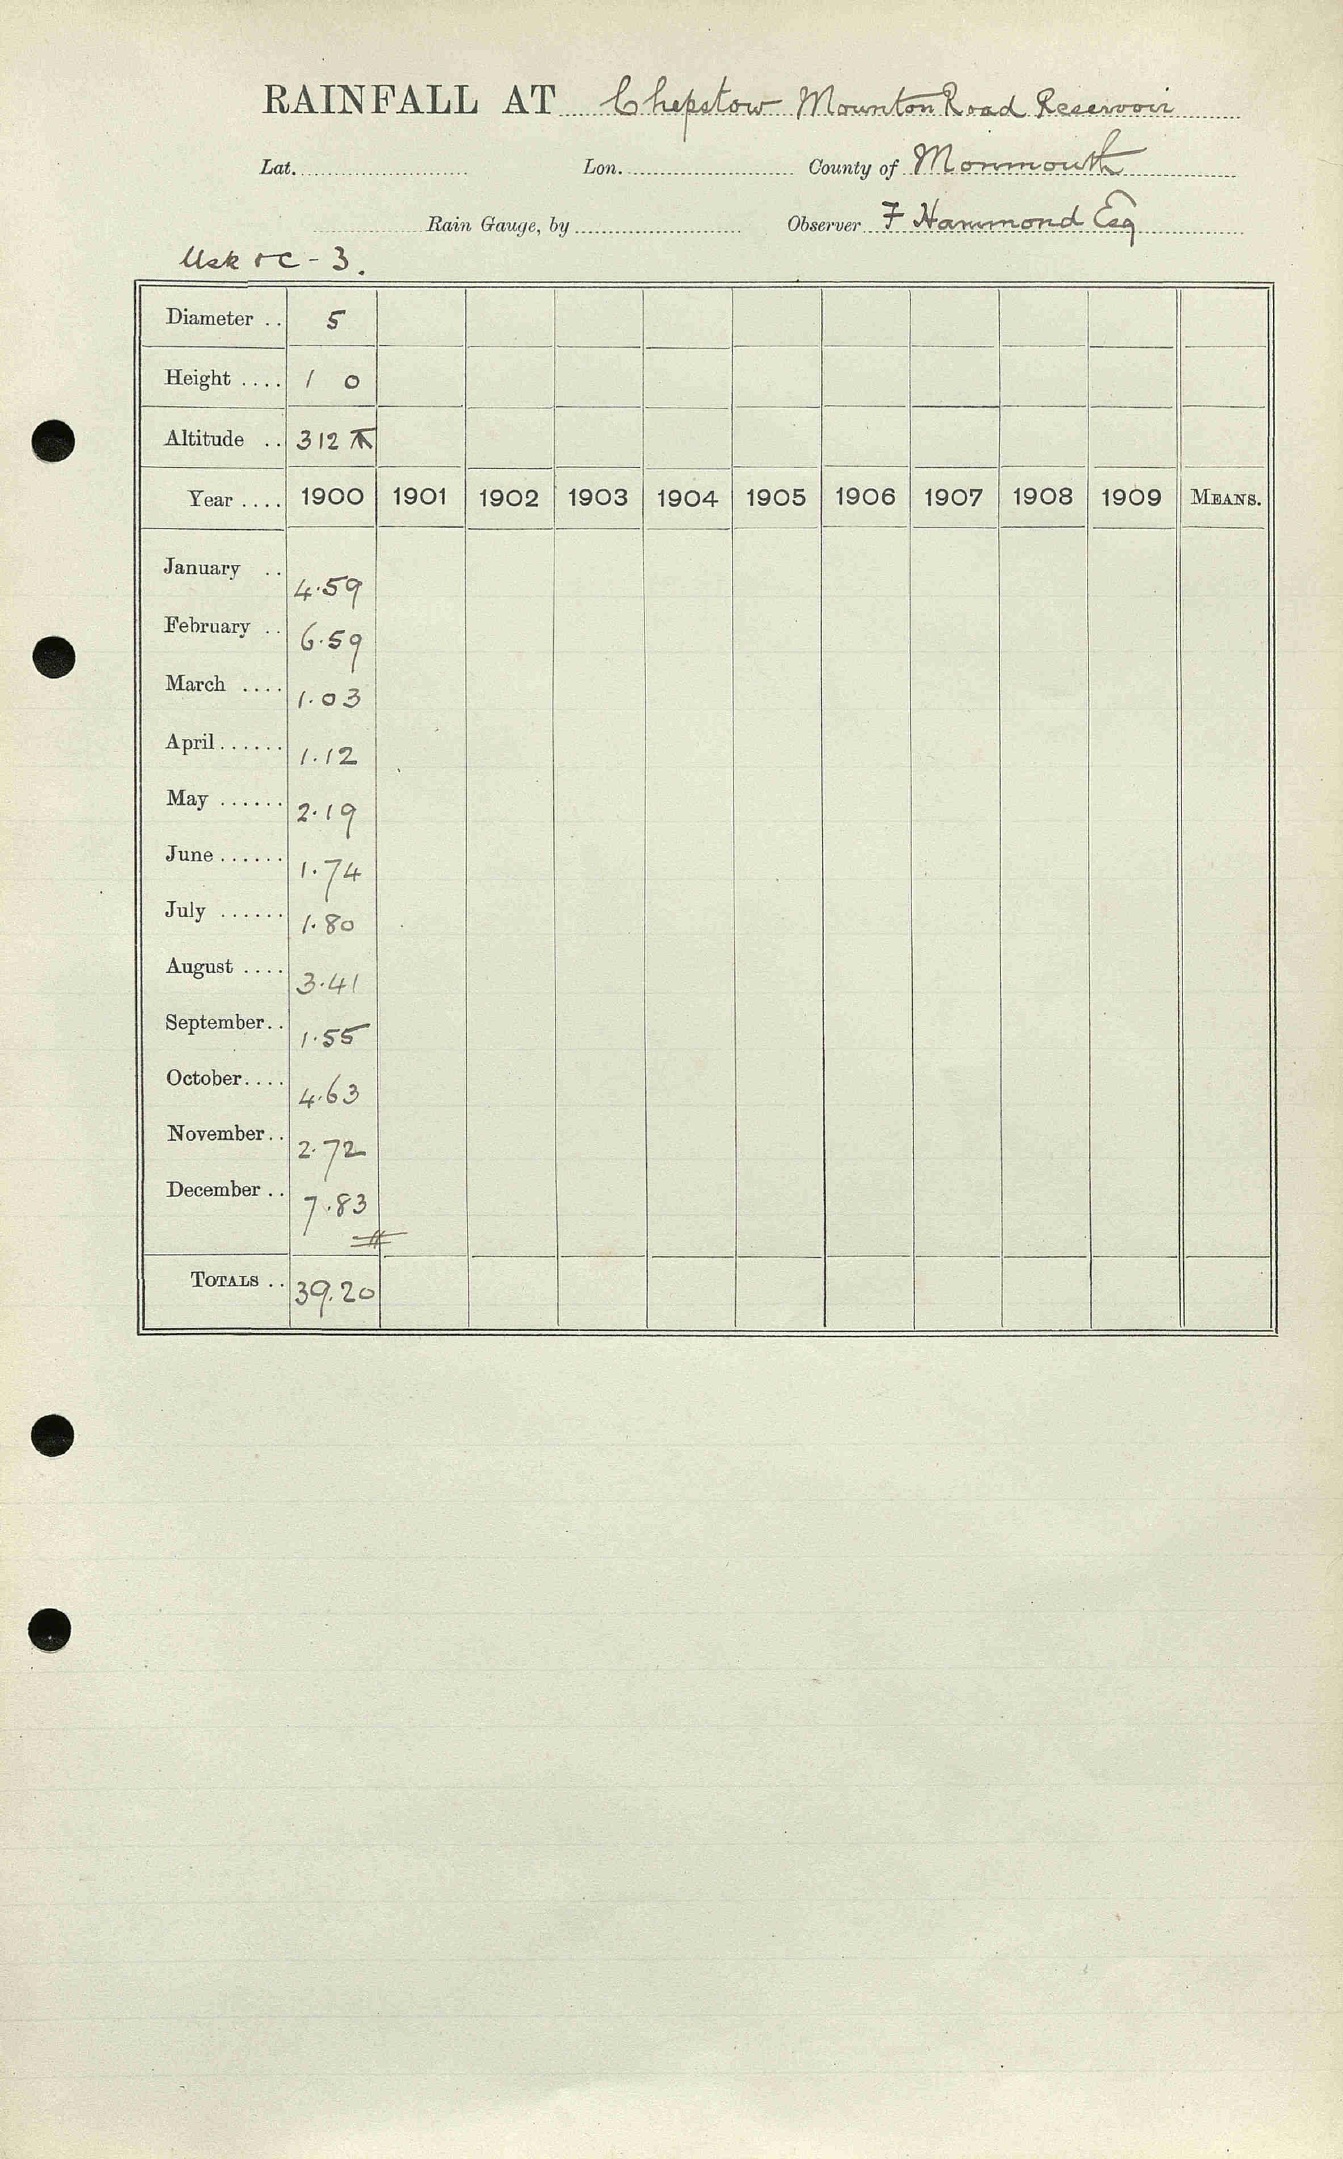 RAINFALL AT Chepstow Mounton Road Reservoir
Lat. Lon. County of Monmouth
Rain Gauge, by Observer F Hammond Esq
Usk &c - 3.
Diameter .. 5
Height .... 1 0
Altitude .. 312
Year .... 1900 1901 1902 1903 1904 1905 1906 1907 1908 1909 MEANS.
January .. 4.59
February .. 6.59
March .... 1.03
April ...... 1.12
May ...... 2.19
June ...... 1.74
July ...... 1.80
August .... 3.41
September.. 1.55
October.... 4.63
November.. 2.72
December .. 7.83
TOTALS .. 39.20